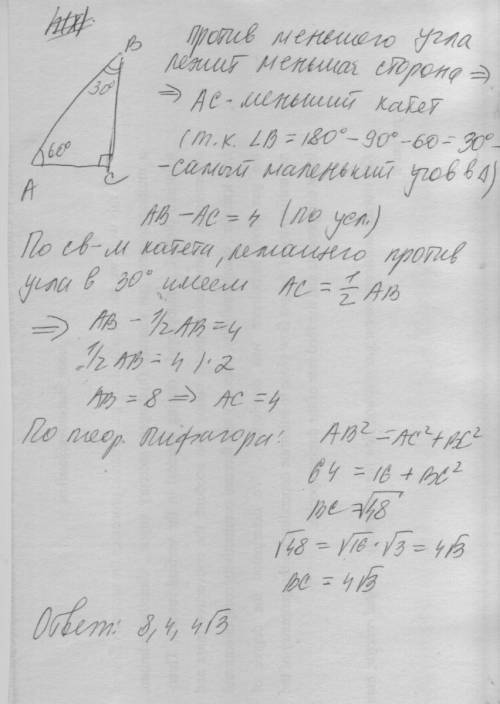 B
30°
60°
A
C
против меньшего угла
лежит меньшая сторона ⇒
⇒ AC - меньший катет
(т.к. ∠B = 180° - 90° - 60 = 30° -
- самый маленький угов в Δ)
AB - AC = 4 (по усл.)
По св-м катета, лежащего против
угла в 30° имеем AC = 1/2 AB
⇒ AB - 1/2 AB = 4
1/2 AB = 4 | · 2
AB = 8 ⇒ AC = 4
По теор. Пифагора: AB² = AC² + BC²
64 = 16 + BC²
BC = √48
√48 = √16 · √3 = 4√3
BC = 4√3
Ответ: 8, 4, 4√3